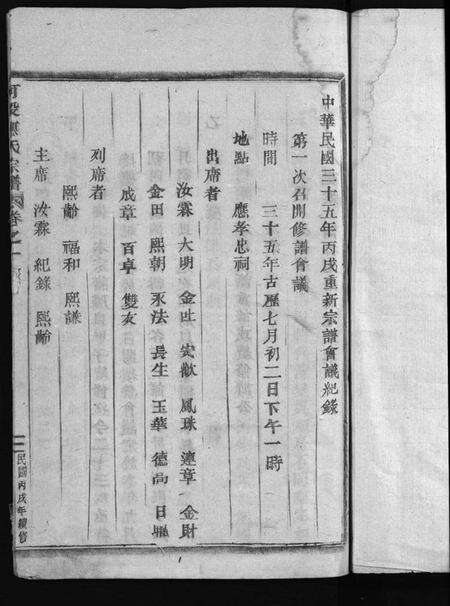 中華民國三十五年丙戌重新宗譜會議紀錄
第一次召開修譜會議
時間 三十五年古歷七月初二日下午一時
地點 應孝思祠
出席者
汝霖 大明 金 安猷 鳳珠 連章 金財
金田 熙朝 永法 長生 玉華 德尚 日
成章 百卓 雙友
列席者
熙齡 福和 熙謙
主席 汝霖 紀錄 熙齡
氏宗譜 卷之一
民國丙戌年續修